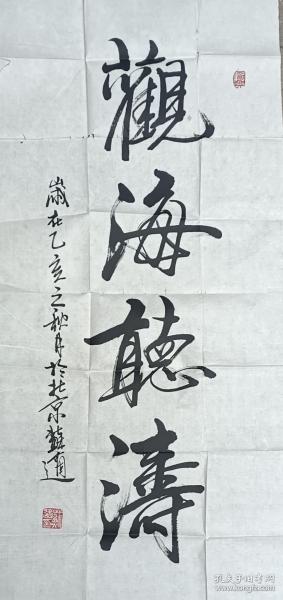 觀海聽濤
歲在乙亥之秋月於北京蘇適
孔夫子旧书网